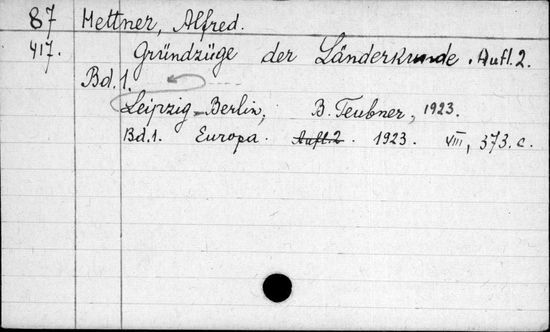 87 Hettner, Alfred.
417. Gründzüge der Länderkunde. Aufl. 2.
Bd. 1.
Leipzig-Berlin, B. Teubner, 1923.
Bd. 1. Europa. Aufl. 2. 1923. VIII, 373. c.